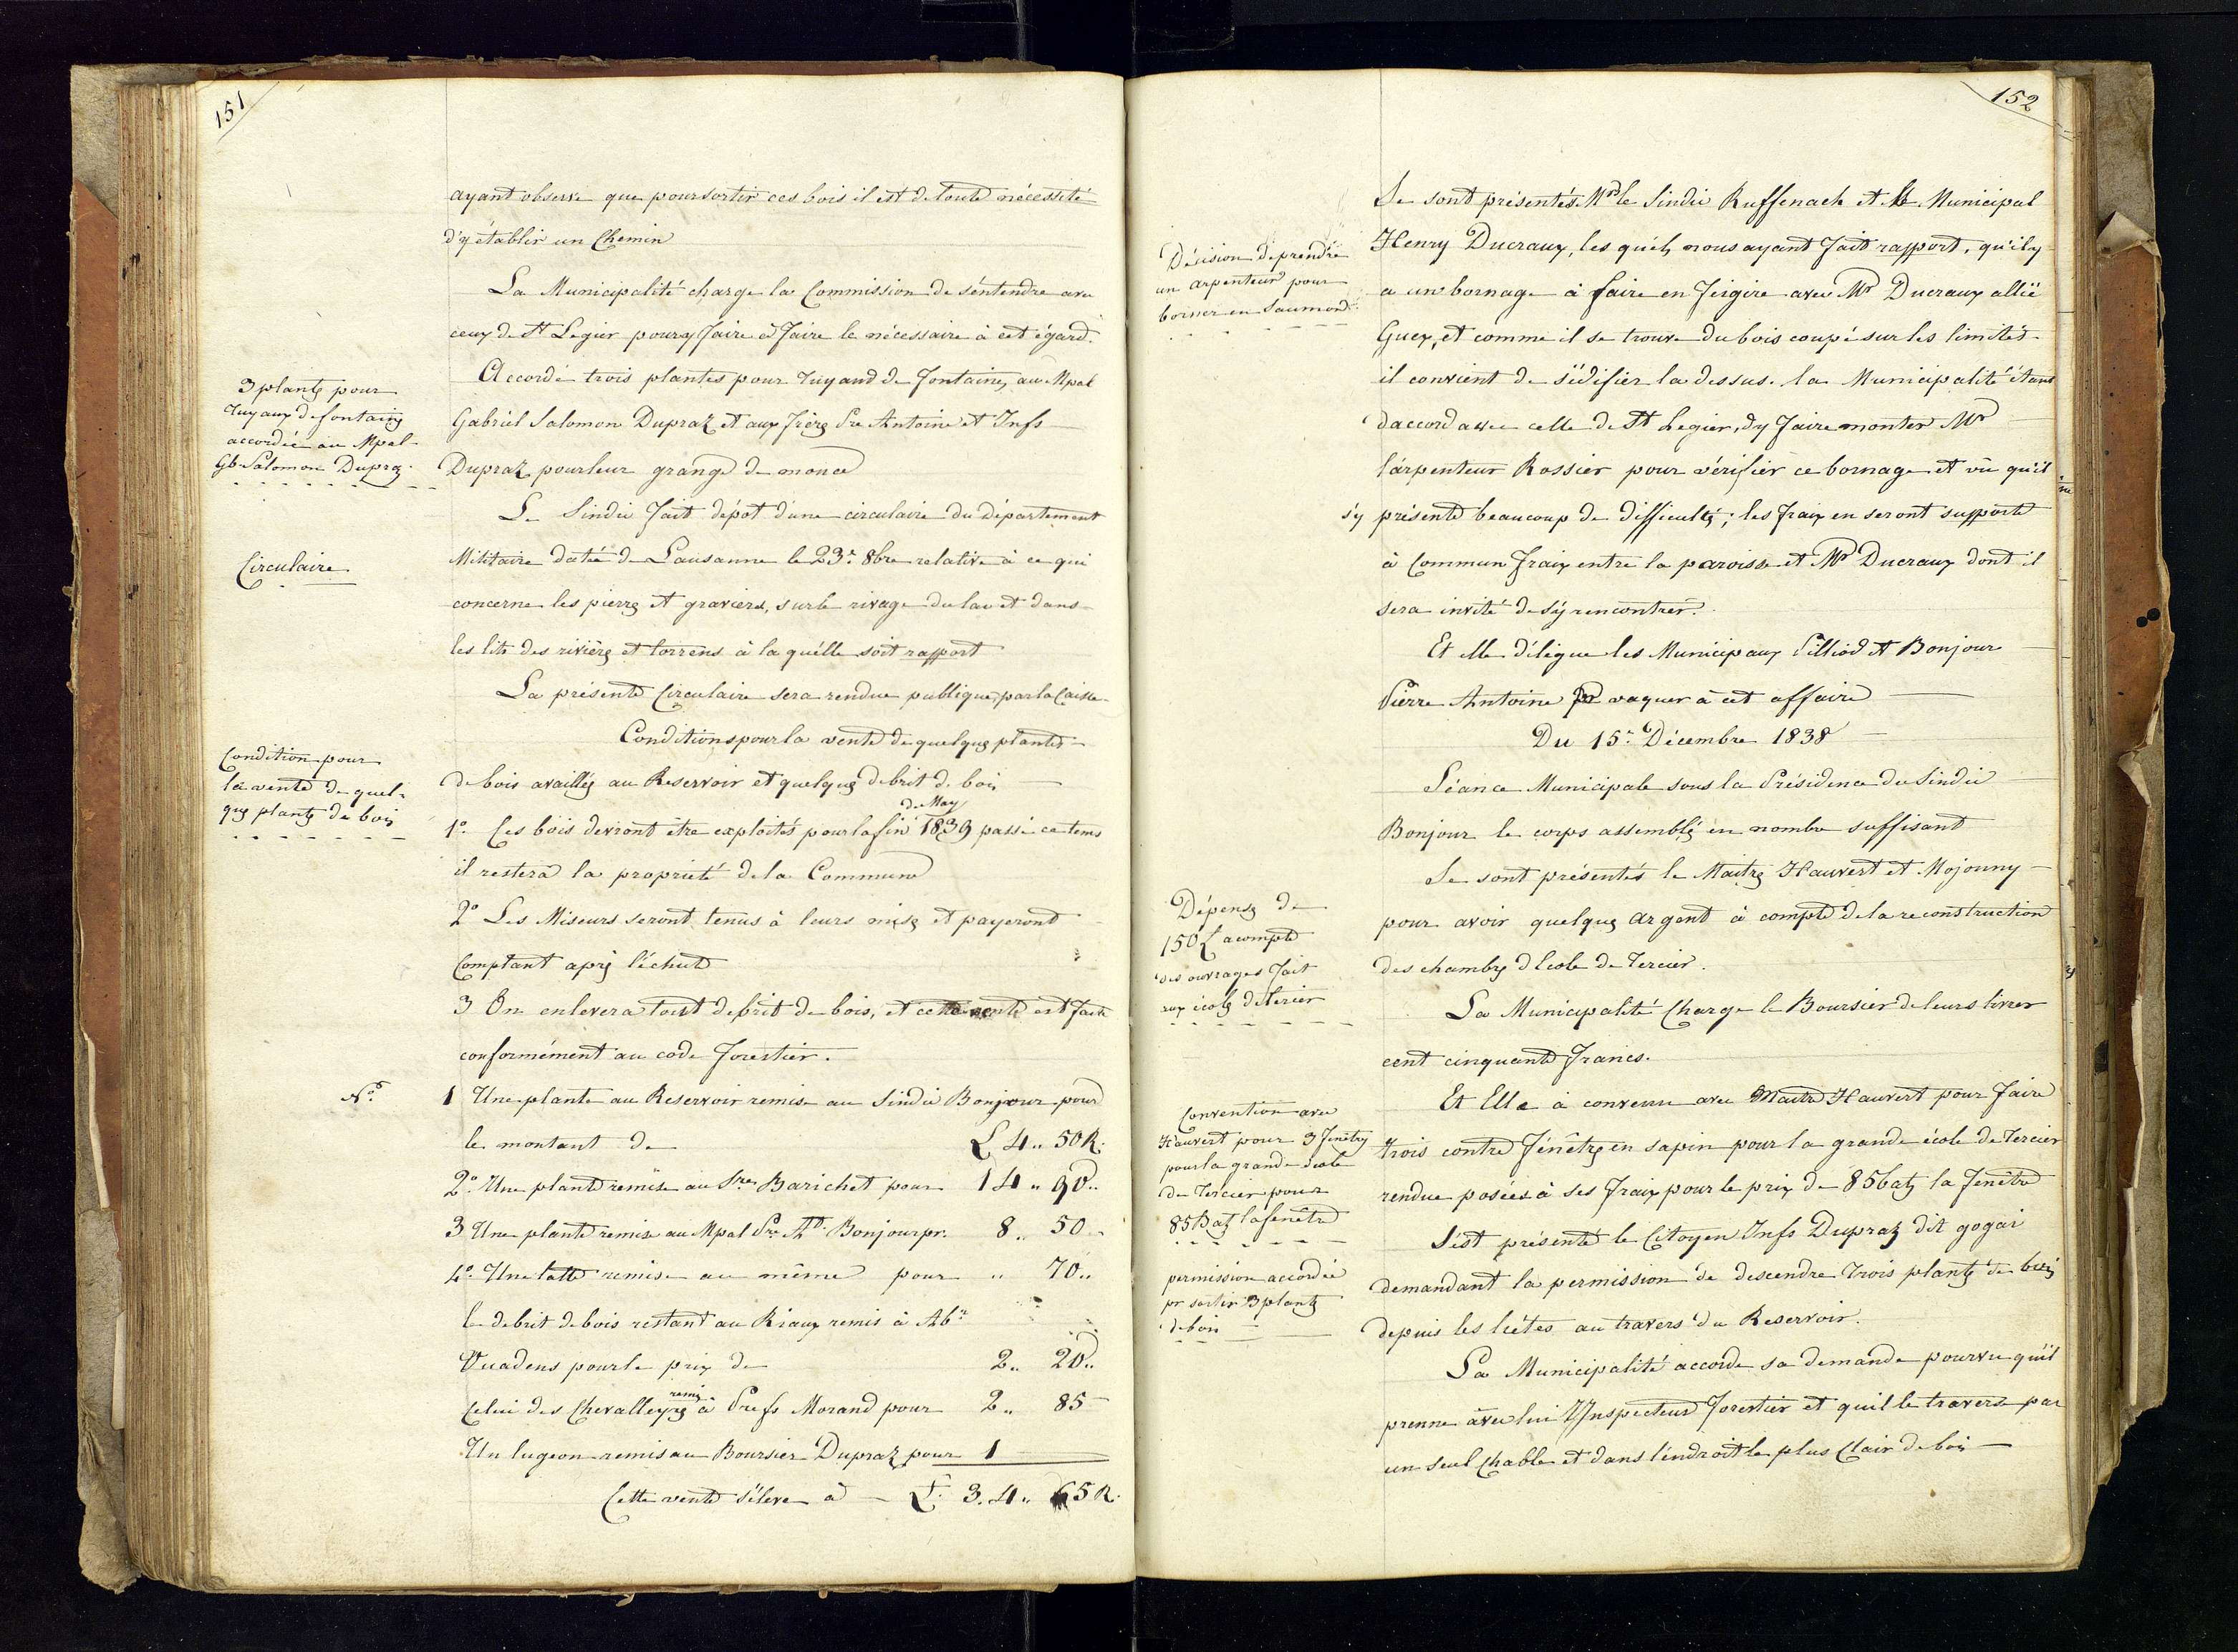 151
ayant observé que pour sortir ces bois il est de toute nécessité
d'y établir un Chemin
La Municipalité charge la Commission de s'entendre avec
ceux de St Legier pour y faire à faire le nécessaire à cet égard.
3 plantes pour
Tuyaux de fontaines
accordée au Mpal
Gb Salomon Dupraz.
Accordé trois plantes pour Tuyaud de fontaines au Mpal
Gabriel Salomon Dupraz et aux frères Pre Antoine et Jnfs
Dupraz pour leur grange de
Circulaire
Le Sindic fait dépot d'une circulaire du département
Militaire datée de Lausanne le 23e 8bre relative à ce qui
concerne les pierres et graviers, sur le rivage du lac et dans
les lits des rivières et torrens à la quélle soit rapport
La présente Circulaire sera rendue publique par la Caisse
Condition pour
la vente de quel-
ques plantes de bois
Conditions pour la vente de quelques plantes
de bois au Reservoir et quelques debrit de bois
1o Ces bois devront être exploités pour la fin de May 1839 passé ce tems
il restera la proprieté de la Commune
2o Les Miseurs seront tenus à leurs mises et payeront
Comptant après l'échute
3 On enlevera tout debrit de bois, et cette vente est faite
conformément au code forestier.
No. 1 Une plante au Reservoir remise au Sindic Bonjour pour
le montant de L 4 .. 50 R.
2o. Une plante remise au Sre Barichet pour 14 .. 90 ..
3 Une plante remise au Mpal Pre Ate. Bonjour pr. 8 .. 50
4o. Une latte remise au même pour .. 70 ..
le debrit de bois restant au Riaux remis à Abm
Cuadens pour le prix de 2 .. 20 ..
Celui des Chevalleyres remis à Prefs Morand pour 2 .. 85
Un lugeon remis au Boursier Dupraz pour 1
Cette vente s'éleve à L. 34 .. 65 R.
152
Décision de prendre
un arpenteur pour
borner en Saumont
Se sont présentés Mrs le Sindic Ruffenach et le Municipal
Henry Ducraux, les quéls nous ayant fait rapport, qu'il y
a un bornage à faire en avec Mr Ducraux allié
Guex, et comme il se trouve du bois coupé sur les limites
il convient de s'édifier la dessus. la Municipalité étant
d'accord avec celle de St Legier, d'y faire monter Mr
l'arpenteur Rossier pour vérifier ce bornage et vû qu'il
s'y présente beaucoup de difficultés; les fraix en seront supporté
à Commun fraix entre la paroisse et Mr Ducraux dont il
sera invité de s'y rencontrer.
Et elle déligue les Municipaux Pilliod et Bonjour
Pierre Antoine pr vaquer à cet affaire
Du 15e. Décembre 1838
Séance Municipale sous la Présidence du Sindic
Bonjour le corps assemblés en nombre suffisant
Dépense de
150 L acompte
des ouvrages fait
aux écoles de Tercier
Se sont présentés le Maitres Hauvert et Mojonny
pour avoir quelques argent à compte de la reconstruction
des chambres d'ecole de Tercier.
La Municipalité Charge le Boursier de leurs livrer
cent cinquante francs.
Convention avec
Hauvert pour 3 fenêtres
pour la grande école
de Tercier pour
85 Batz la fenêtre
Et Elle à convenu avec Maitre Hauvert pour faire
trois contre fénêtres en sapin pour la grande école de Tercier
rendue posées à ses fraix pour le prix de 85 batz la fenêtre
permission accordée
pr sortir 3 plantes
de bois
S'est présenté le Citoyen Jnfs Dupraz dit gogai
demandant la permission de descendre trois plantes de bois
depuis les au travers du Reservoir.
La Municipalité accorde sa demande pourvu qu'il
prenne avec lui l'Inspecteur forestier et quil le travers par
un seul Chable et dans l'endroit le plus Clair de bois